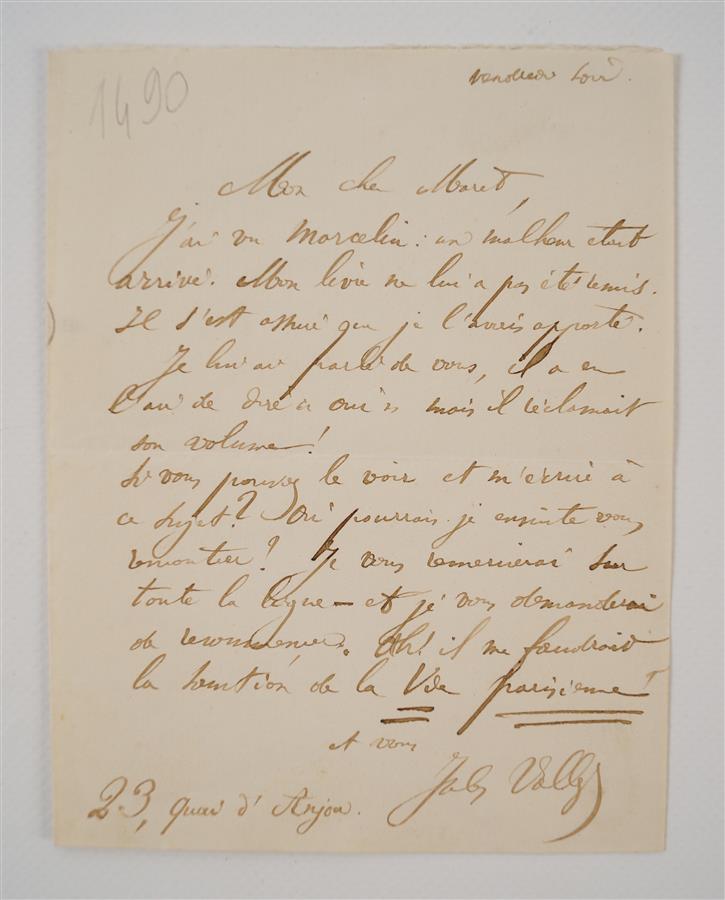 1490
vendredi soir.
Mon cher Maret,
J'ai vu Marcelin : un malheur était
arrivé. Mon livre ne lui a pas été remis.
Il s'est assuré que je l'avais apporté.
Je lui ai parlé de vous, il a eu
l'air de dire « oui » mais il réclamait
son volume !
Si vous pouvez le voir et m'écrire à
ce sujet ? Où pourrais-je ensuite vous
remontrer ? Je vous remercierai sur
toute la ligne — et je vous demanderai
de recommencer. Ah ! il me faudrait
la sanction de la Vie parisienne !
et vous
Jules Vallès
23, quai d'Anjou.